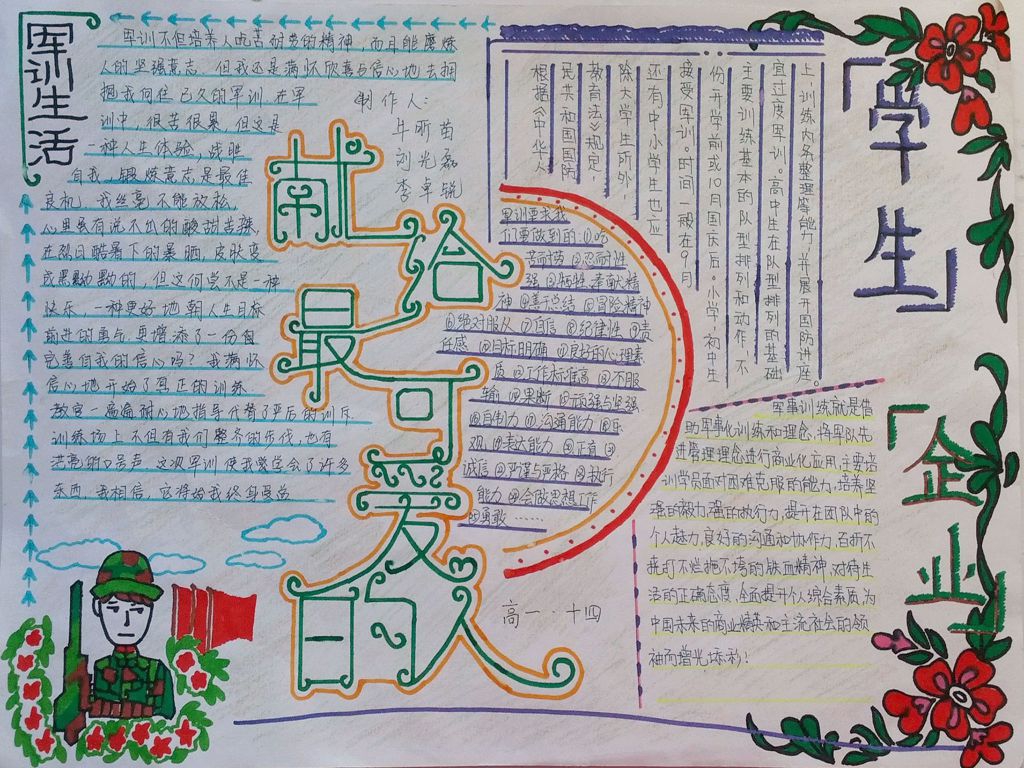 军训生活
军训不但培养人吃苦耐劳的精神，而且能磨炼
人的坚强意志.但我还是满怀欣喜与信心地去拥
抱我向往已久的军训.在军
训中，很苦很累，但这是
一种人生体验，战胜
自我，锻炼意志是最佳
良机，我丝毫不能放松，
心里虽有说不出的酸甜苦辣，
在烈日酷暑下的暴晒，皮肤变
成黑黝黝的，但这何尝不是一种
快乐，一种更好地朝人生目标
前进的勇气，更增添了一份自
完善自我的信心吗？我满怀
信心地开始了真正的训练
教官一遍遍耐心地指导代替了严厉的训斥
训练场上不但有我们整齐的步伐，也有
洪亮的口号声，这次军训使我学会了许多
东西，我相信，它将给我终身受益
制作人：
牛昕苗
刘光磊
李卓锐
献给最可爱的人
根据《中华人
民共和国国防
教育法》规定，
除大学生所外，
还有中小学生也应
接受军训。时间一般在9月
份开学前或10月国庆后。小学、初中生
主要训练基本的队型排列和动作，不
宜过度军训。高中生在队型排列的基础
上训练内务整理等能力，并展开国防讲座。
「学生」
军训要求我
们要做到的：①吃
苦耐劳 ②忍耐性
强 ③牺牲奉献精
神 ④善于总结 ⑤冒险精神
⑥绝对服从 ⑦自信 ⑧纪律性 ⑨责
任感 ⑩目标明确 ⑪良好的心理素
质 ⑫工作标准高 ⑬不服
输 ⑭果断 ⑮顽强与坚强
⑯自制力 ⑰沟通能力 ⑱乐
观 ⑲表达能力 ⑳正直
诚信 严谨与严格 执行
能力 会做思想工作
勇敢……
高一·十四
「企业」
军事训练就是借
助军事化训练和理念，将军队先
进管理理念进行商业化应用，主要培
训学员面对困难克服的能力，培养坚
强的毅力强的执行力，提升在团队中的
个人魅力，良好的沟通和协作力，百折不
挠打不烂拖不垮的铁血精神，对待生
活的正确态度，全面提升个人综合素质，为
中国未来的商业精英和主流社会的领
袖而增光添彩！